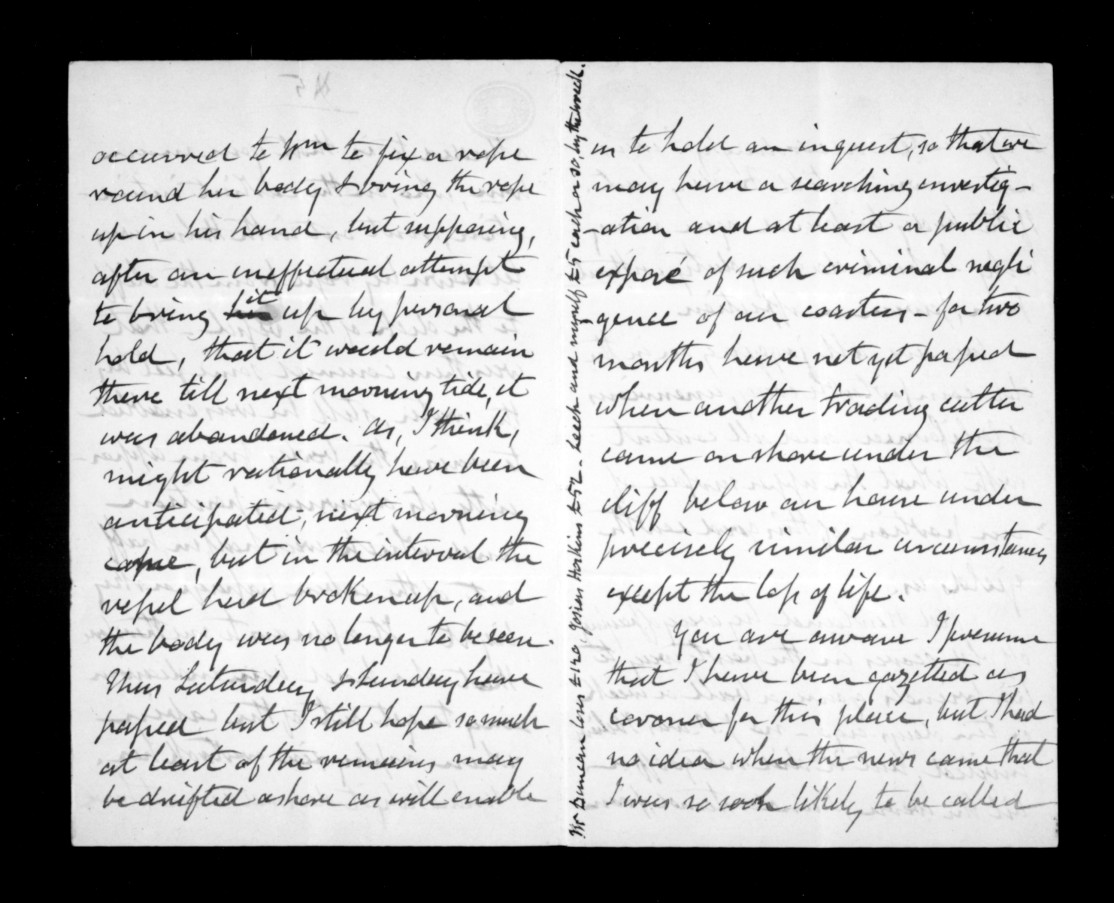 occurred to Wm to fix a rope
round her body & bring the rope
up in his hand, but supposing,
after an ineffectual attempt
to bring it up by personal
hold, that it would remain
there till next morning tide, it
was abandoned. As, I think,
might rationally have been
anticipated, next morning
came, but in the interval the
vessel had broken up, and
the body was no longer to be seen.
Thus Saturday & Sunday have
passed but I still hope so much
at least of the remains may
be drifted ashore as will enable
Mr Duncan loses £120, Josias Hoskins £52 - Leech and myself £5 each or so, by the wreck.
us to hold an inquest, so that we
may have a searching investig-
-ation and at least a public
exposé of such criminal negli
-gence of our coasters - for two
months have not yet passed
when another trading cutter
came on shore under the
cliff below our house under
precisely similar circumstances
except the loss of life.
You are aware I presume
that I have been gazetted as
coroner for this place, but I had
no idea when the news came that
I was so soon likely to be called